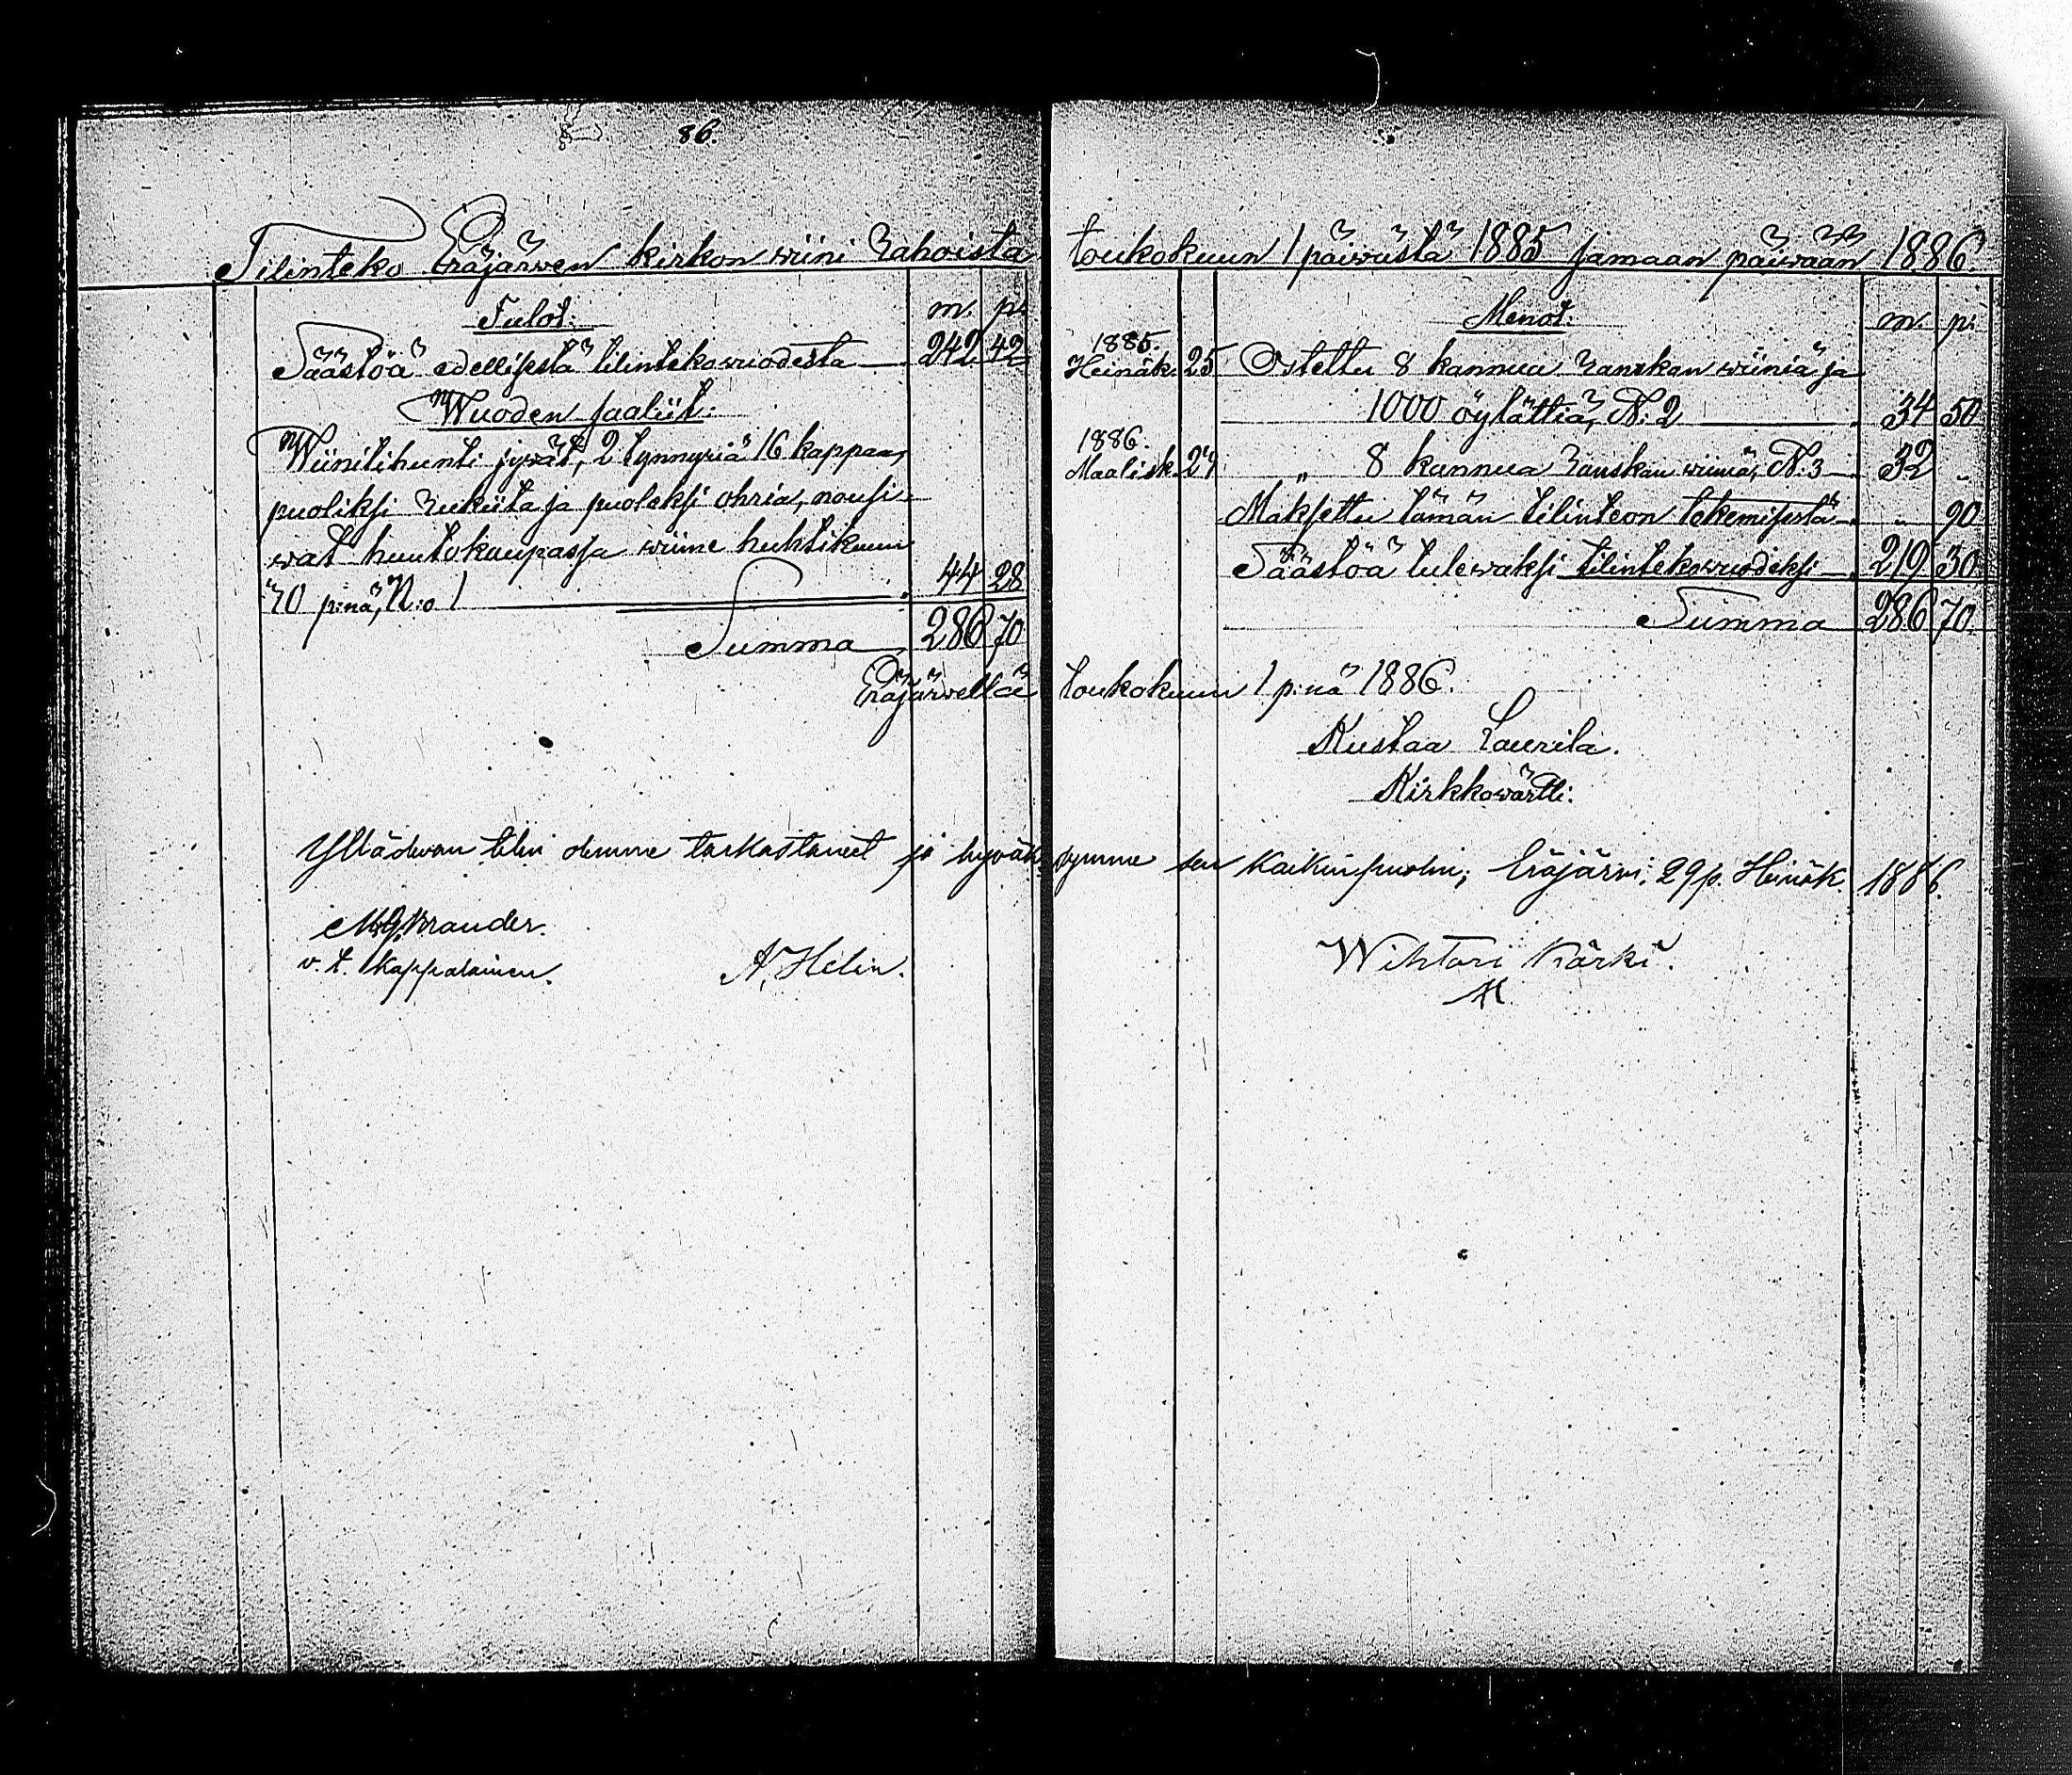 86.
Tilinteko Eräjärwen kirkon wiini rahoista
Tulot: m. p.
Säästöä edellisestä tilintekowuodesta 242 42
Wuoden saaliit:
Wiinitihunti jywät, 2 tynnyriä 16 kappaa,
puoliksi rukiita ja puoleksi ohria, nousi-
wat huutokaupassa wiime huhtikuun
30 p:nä, N:o 1 44 28
Summa 286 70
toukokuun 1 päiwästä 1885 samaan päiwään 1886.
Menot: m. p.
1885.
Heinäk. 25 Ostettu 8 kannua ranskan wiiniä ja
1000 öylättiä, N: 2 34 50
1886.
Maalisk. 24 „ 8 kannua ranskan wiiniä, N: 3 32 „
Maksettu tämän tilinteon tekemisestä „ 90
Säästöä tulewaksi tilintekowuodeksi 219 30
Summa 286 70
Eräjärwellä toukokuun 1 p:nä 1886.
Kustaa Laurila.
Kirkkowärtti:
Ylläolevan tilin olemme tarkastaneet ja hyväksymme sen kaikinpuolin; Eräjärvi, 29 p. Heinäk. 1886.
Brander.
v. t. kappalainen.
A. Helin.
Wihtori Kärki.